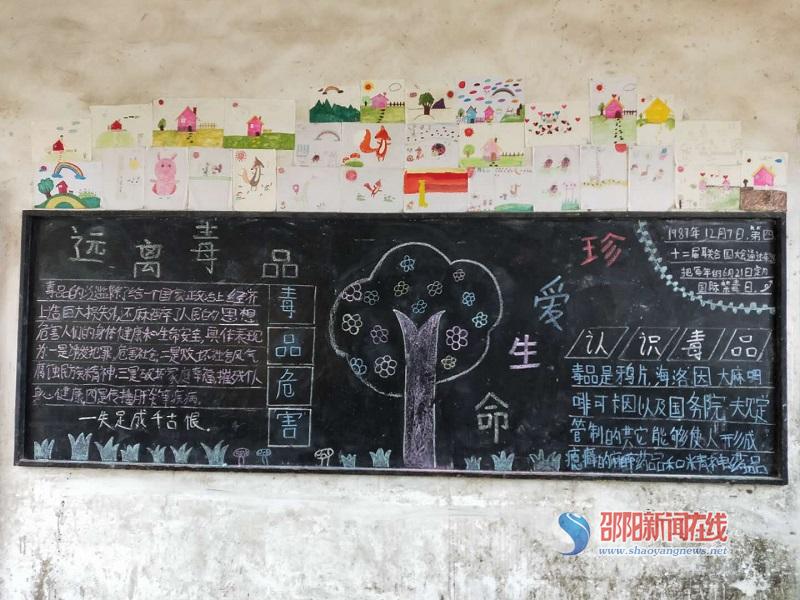 远离毒品
毒品的
给一个国家政治上经济
上造
损失,还麻
了人民的思想
危害人们的身体健康和生命安全,具体表现
为一是诱发犯罪,危害社会,二是败坏社会风气
腐蚀民族精神,三是破坏家庭幸福,摧残个人
身心健康,
传播
疾病.
一失足成千古恨.
毒品危害
珍爱生命
1987年12月7日,第四
十二届联合国大
通过
把每年的6月21日定为
国际禁毒日.
认识毒品
毒品是鸦片,海洛因,大麻吗
啡可卡因以及国务院
规定
管制的其它能够使人形成
瘾癖的麻醉药品和精神药品
邵阳新闻在线
www.shaoyangnews.net